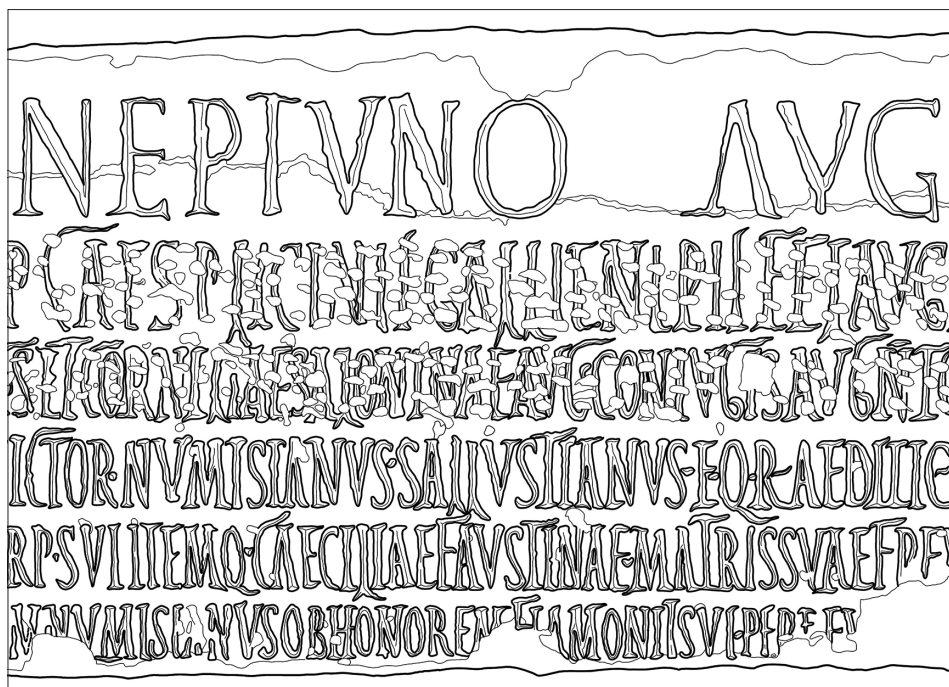 NEPTVNO AVG
CAES P LICINII GALLIENI PII FEL AVG
ET CORNELIAE SALONINAE AVG CONIVGIS AVG N
ICTOR·NVMISIANVS·SALLVSTIANVS·E·Q·R·AEDILIC
RP·SVI ITEMQ·CAECILIAE FAVSTINAE MATRIS SVAE
NVMISIANVS OB HONOREM FLAMONII SVI